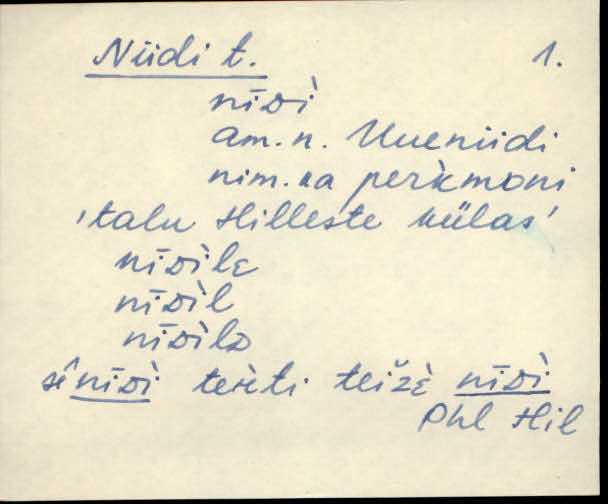 Niidi t. 1.
nīᴅì
am.n. Uueniidi
nim. ka perèmoni
'talu Hilleste külas'
nīᴅìle
nīᴅìl
nīᴅìlᴅ
sê nīᴅì terèti teižè nīᴅì
Phl Hil